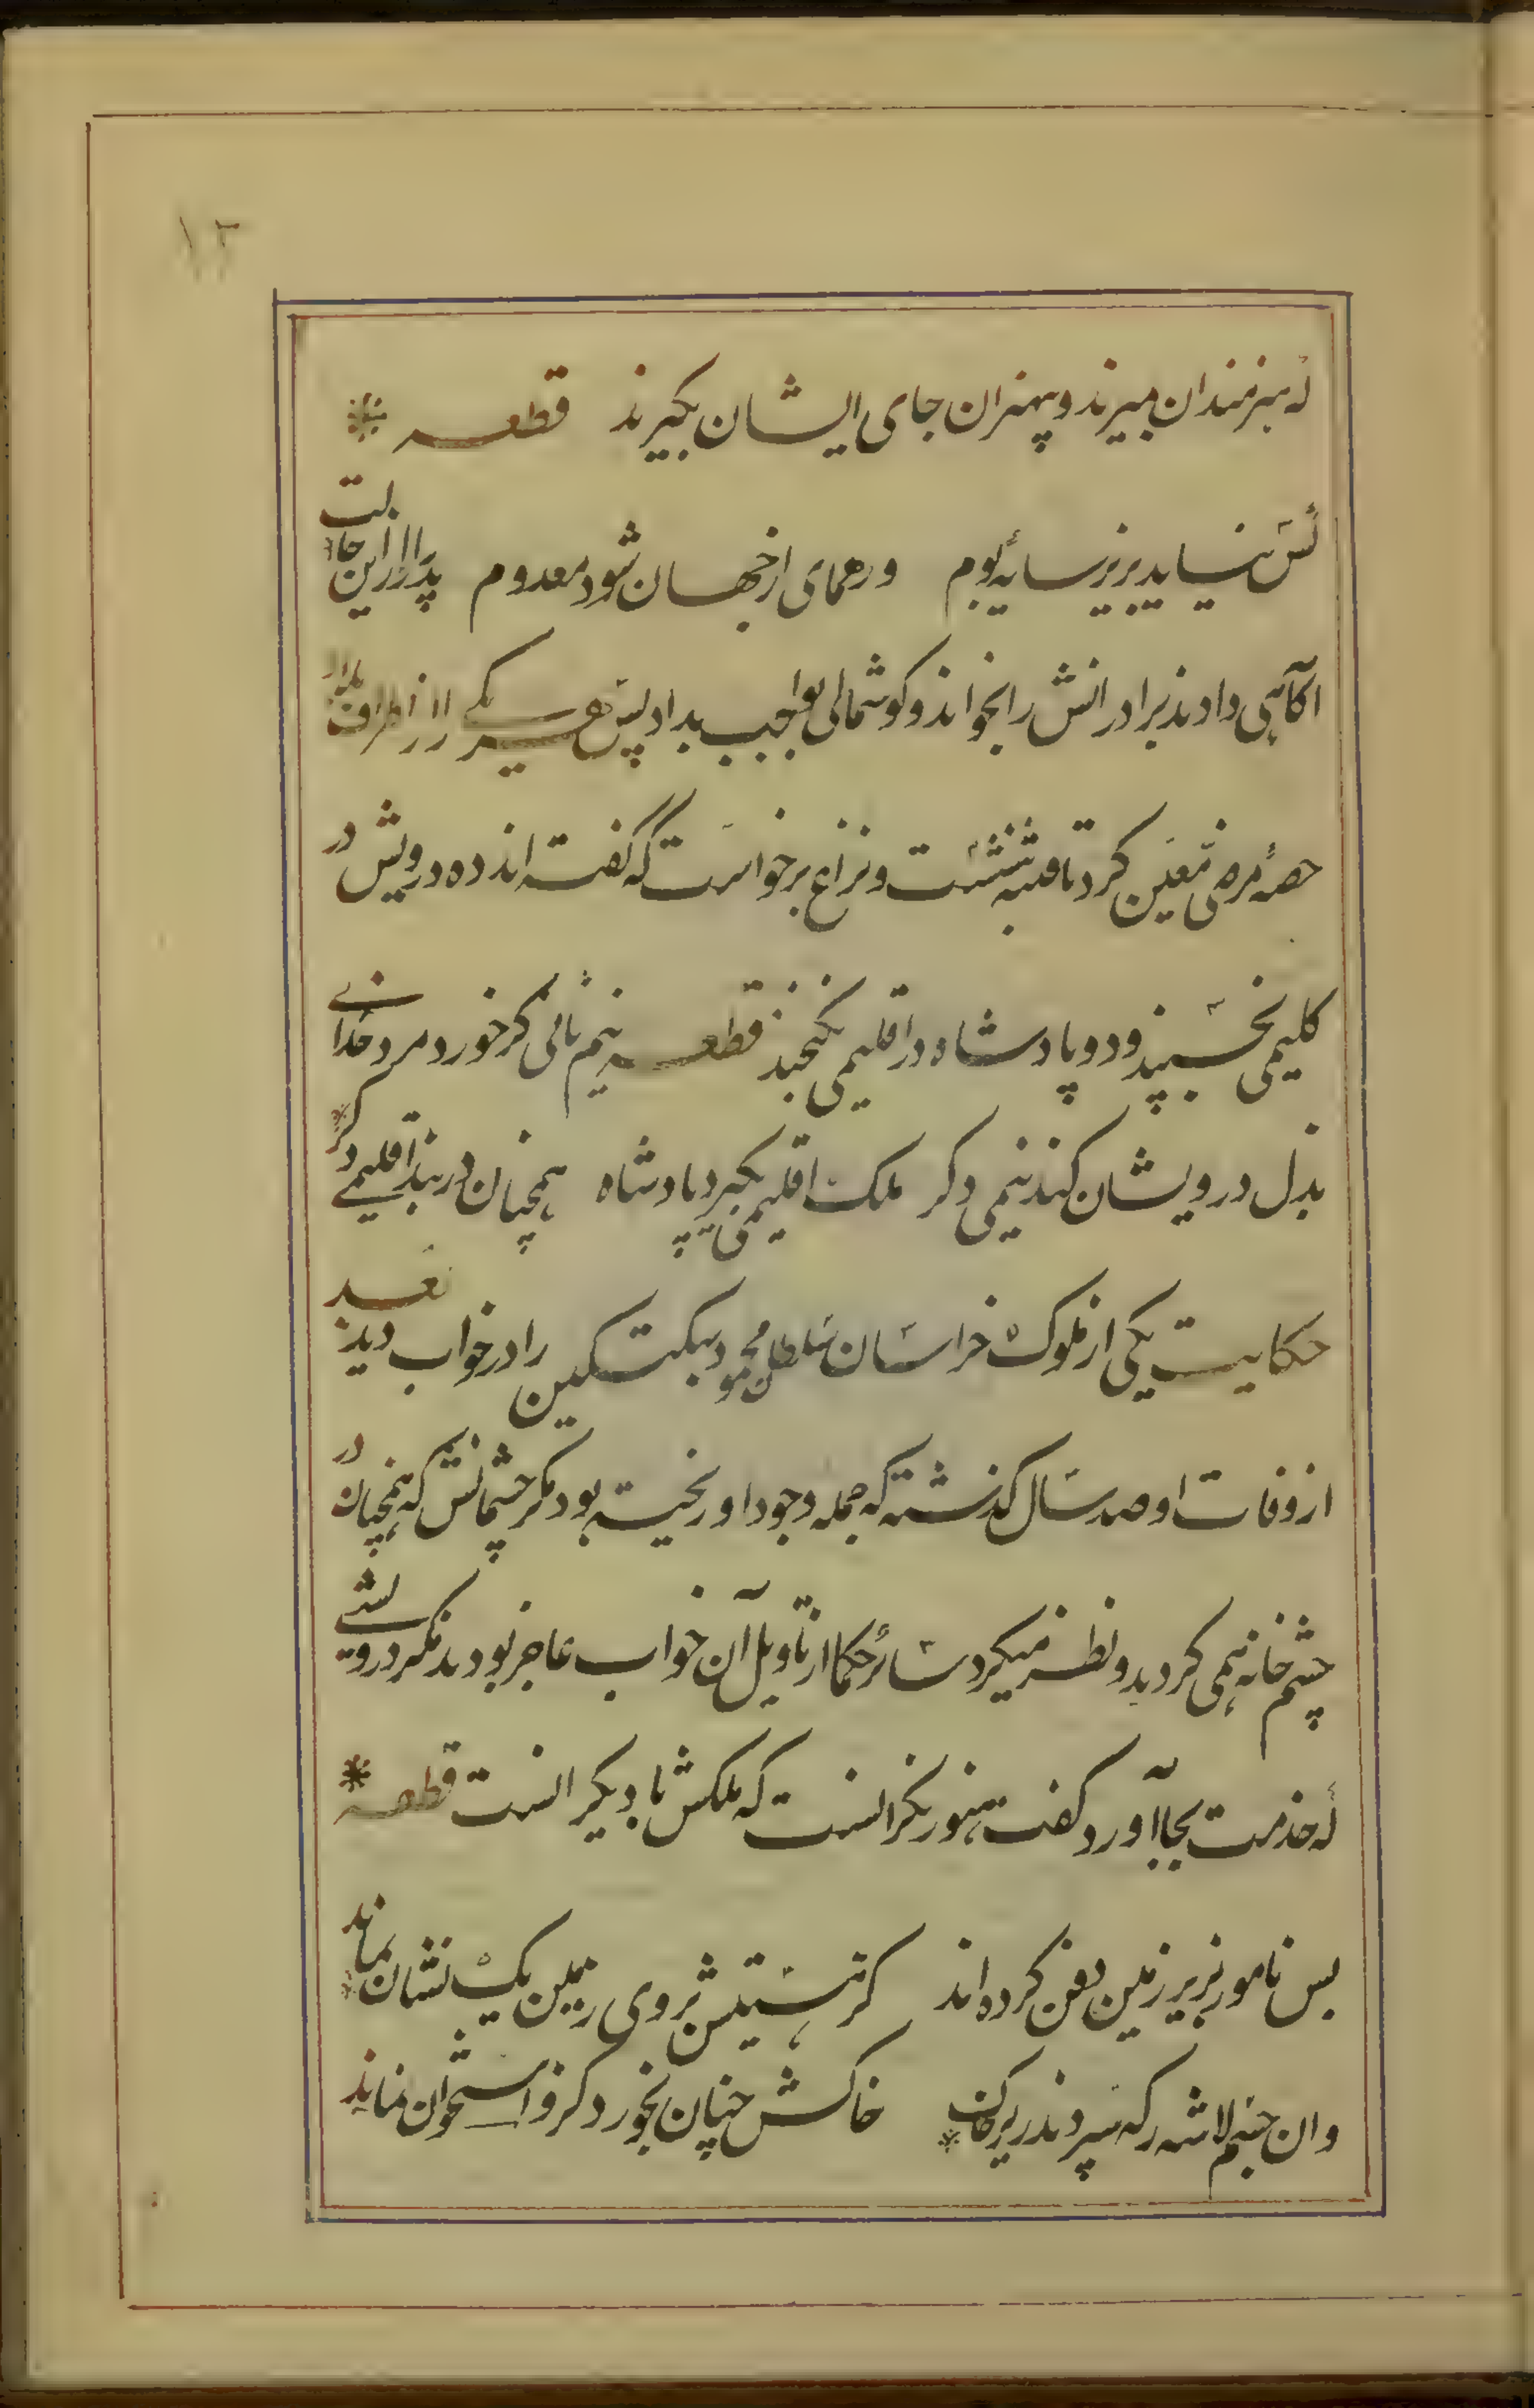 ۱۲
که هنرمندان بمیرند و بیهنران جای ایشان بگیرند قطعه
کس نیاید بزیر سایه بوم ور همای از جهان شود معدوم پدر را ازین حالت
آکاهی دادند برادرانش را بخواند و کوشمالی بواجب بداد پس هر یکی را از اطراف بلاد
حصه مرضی معین کرد تا فتنه بنشست و نزاع برخواست که گفته اند ده درویش در
کلیمی بخسپند و دو پادشاه در اقلیمی نکنجند قطعه نیم نانی کر خورد مرد خدای
بذل درویشان کند نیمی دکر ملک اقلیمی بگیرد پادشاه همچنان در بند اقلیمی دکر
حکایت یکی از ملوک خراسان سلطان محمود سبکتکین را در خواب دید بعد
از وفات او صد سال گذشته که جمله وجود او ریخته بود مکر چشمانش که همچنان در
چشم خانه همی کردید و نظر میکرد سائر حکما از تاویل آن خواب عاجز بودند مکر درویشی
که خدمت بجا آورد و گفت هنوز نکرانست که ملکش با دیگرانست قطعه
بس نامور بزیر زمین دفن کرده اند کز هستیش بروی زمین یک نشان نماند
وان جسم لاشه را که سپردند زیر خاک خاکش چنان بخورد کزو استخوان نماند